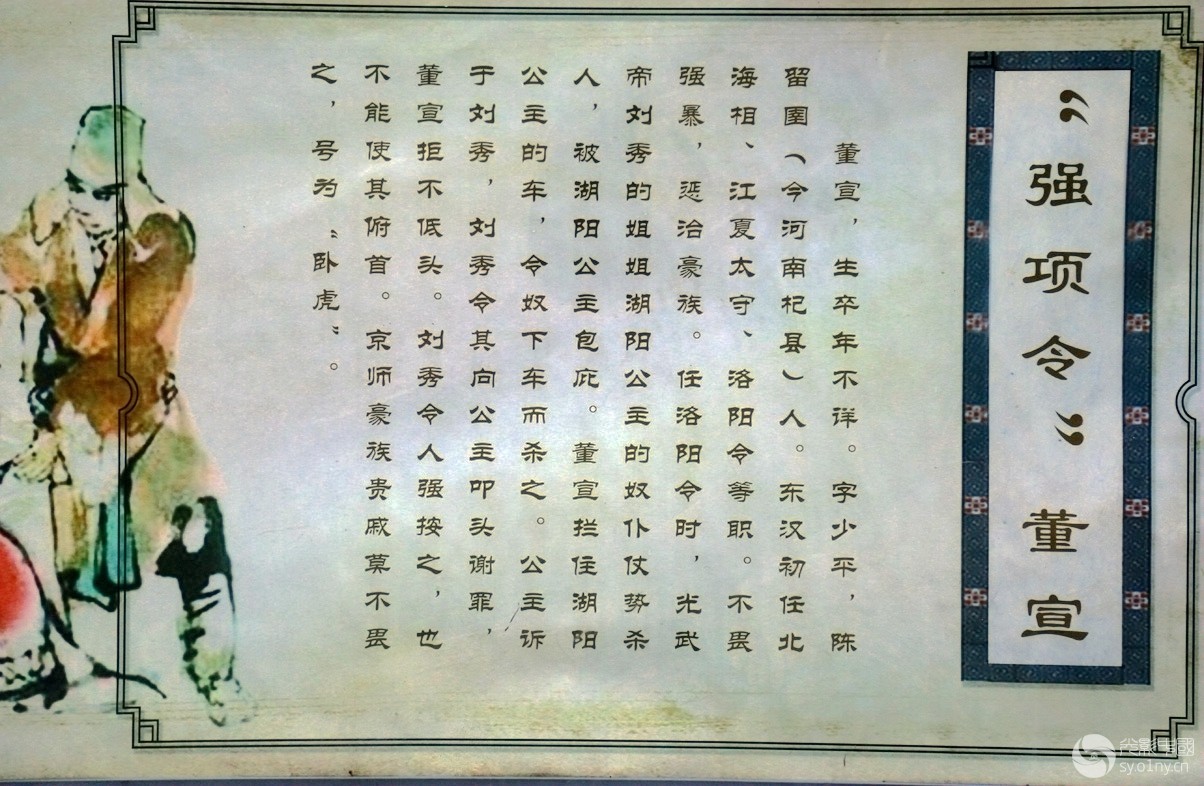 “强项令”董宣
董宣，生卒年不详。字少平，陈
留圉（今河南杞县）人。东汉初任北
海相、江夏太守、洛阳令等职。不畏
强暴，惩治豪族。任洛阳令时，光武
帝刘秀的姐姐湖阳公主的奴仆仗势杀
人，被湖阳公主包庇。董宣拦住湖阳
公主的车，令奴下车而杀之。公主诉
于刘秀，刘秀令其向公主叩头谢罪，
董宣拒不低头。刘秀令人强按之，也
不能使其俯首。京师豪族贵戚莫不畏
之，号为“卧虎”。
sy.o1ny.cn